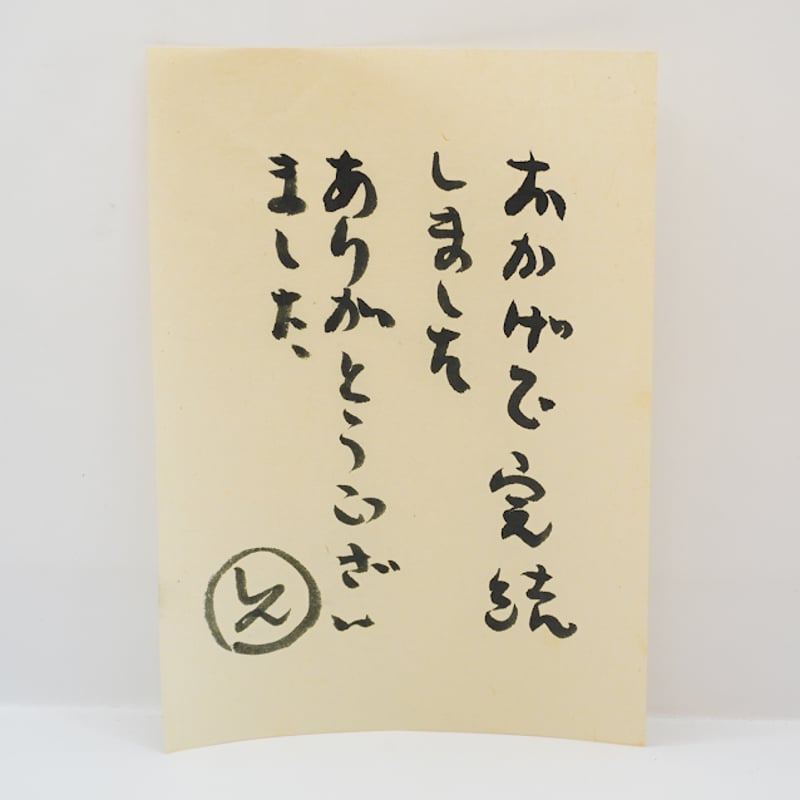 おかげで完結
しました
ありがとうござい
ました、
しん